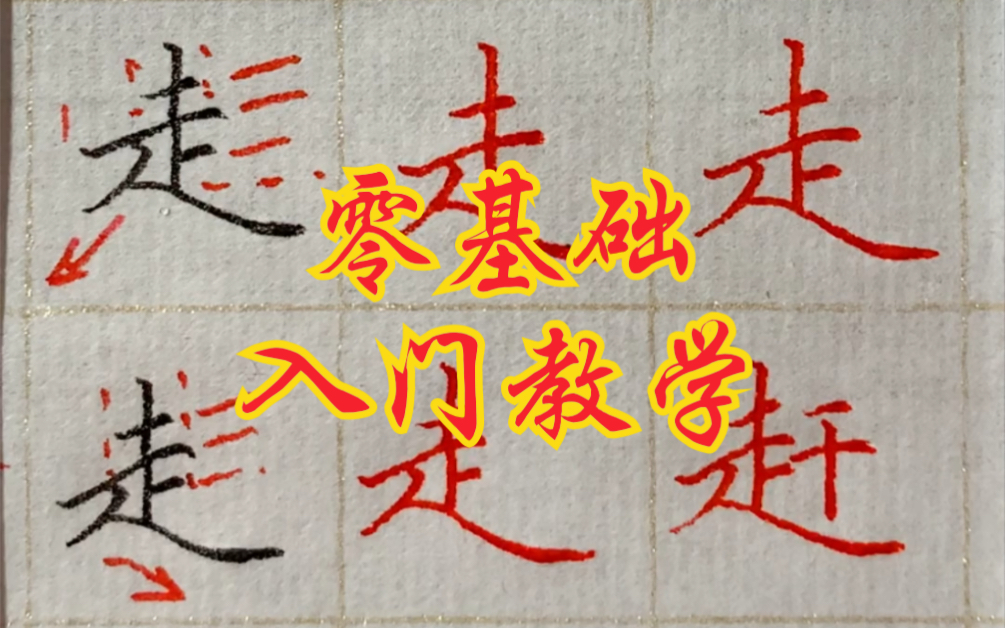 走 走 走
零基础
入门教学
走 走 赶